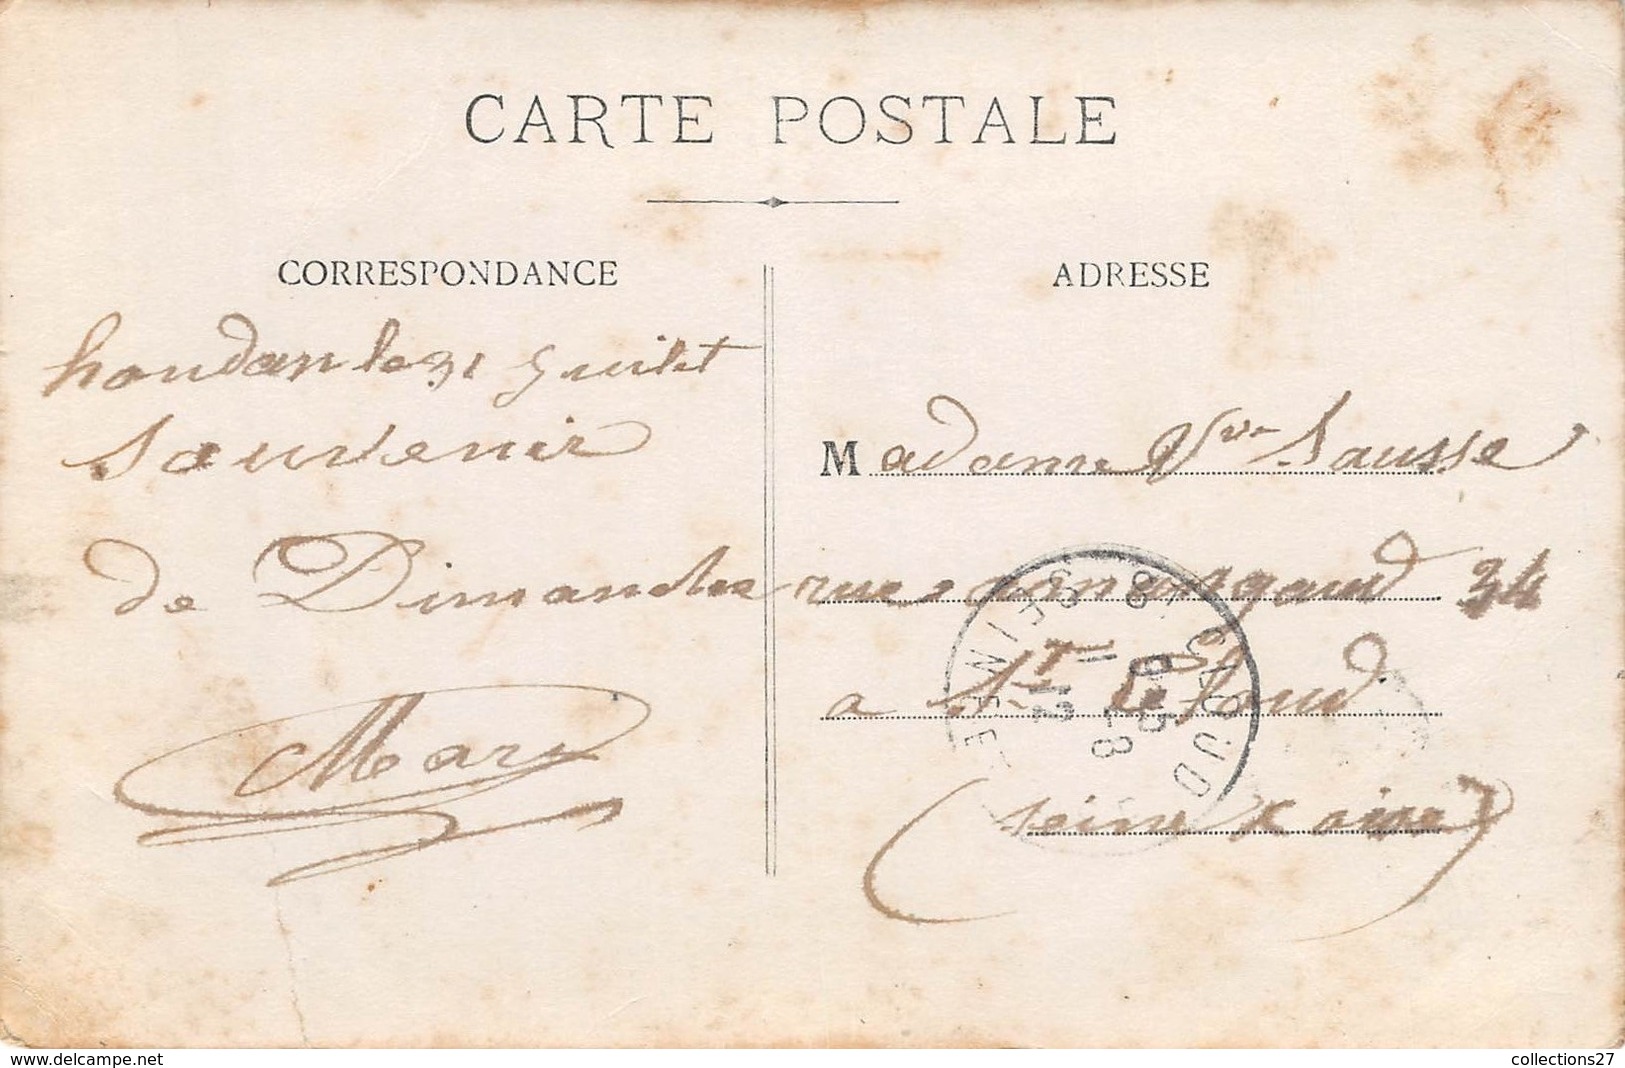 CARTE POSTALE
CORRESPONDANCE
houdan le 31 Juilet
Souvenir
de Dimanche
Mary
ADRESSE
Madame Vve Sausse
rue 34
a St Cloud
(seine & oise)
ST CLOUD
SEINE
delcampe.net
collections27